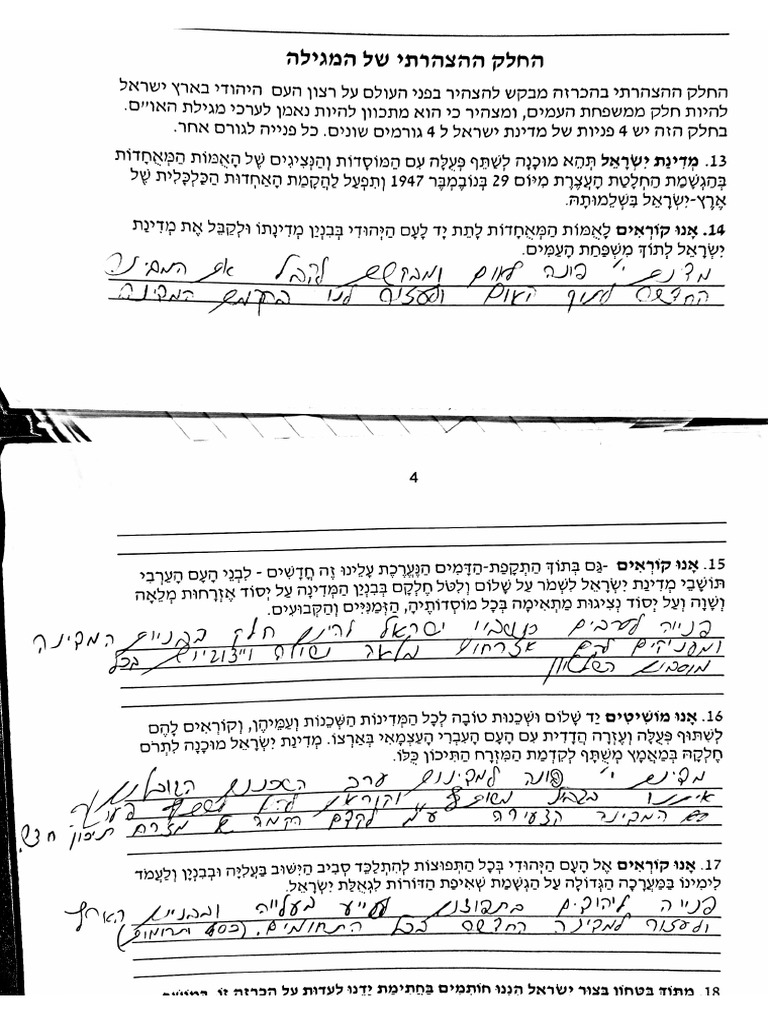 החלק ההצהרתי של המגילה
החלק ההצהרתי בהכרזה מבקש להצהיר בפני העולם על רצון העם היהודי בארץ ישראל
להיות חלק ממשפחת העמים, ומצהיר כי הוא מתכוון להיות נאמן לערכי מגילת האו"ם.
בחלק הזה יש 4 פניות של מדינת ישראל ל 4 גורמים שונים. כל פנייה לגורם אחר.
13. מְדִינַת יִשְׂרָאֵל תְּהֵא מוּכָנָה לְשַׁתֵּף פְּעֻלָּה עִם הַמּוֹסָדוֹת וְהַנְּצִיגִים שֶׁל הָאֻמּוֹת הַמְּאֻחָדוֹת
בְּהַגְשָׁמַת הַחְלָטַת הָעֲצֶרֶת מִיּוֹם 29 בְּנוֹבֶמְבֶּר 1947 וְתִפְעַל לַהֲקָמַת הָאַחְדוּת הַכַּלְכָּלִית שֶׁל
אֶרֶץ-יִשְׂרָאֵל בִּשְׁלֵמוּתָהּ.
14. אָנוּ קוֹרְאִים לָאֻמּוֹת הַמְּאֻחָדוֹת לָתֵת יָד לָעָם הַיְּהוּדִי בְּבִנְיַן מְדִינָתוֹ וּלְקַבֵּל אֶת מְדִינַת
יִשְׂרָאֵל לְתוֹךְ מִשְׁפַּחַת הָעַמִּים.
מדינת י' פונה לאום ומבקשת לקבל את המדינה
החדשה לתוך האום ולעזור לנו בהקמת המדינה
4
15. אָנוּ קוֹרְאִים -גַּם בְּתוֹךְ הַתְקָפַת-הַדָּמִים הַנֶּעֱרֶכֶת עָלֵינוּ זֶה חֳדָשִׁים - לִבְנֵי הָעָם הָעֲרָבִי
תּוֹשָׁבֵי מְדִינַת יִשְׂרָאֵל לִשְׁמֹר עַל שָׁלוֹם וְלִטֹּל חֶלְקָם בְּבִנְיַן הַמְּדִינָה עַל יְסוֹד אֶזְרָחוּת מְלֵאָה
וְשָׁוָה וְעַל יְסוֹד נְצִיגוּת מַתְאִימָה בְּכָל מוֹסְדוֹתֶיהָ, הַזְּמַנִּיִּים וְהַקְּבוּעִים.
פנייה לערבים תושביי ישראל להיות חלק בבניית המדינה
ומעניקים להם אזרחות מלאה ושווה וייצוגיות בכל
מוסדות השלטון
16. אָנוּ מוֹשִׁיטִים יַד שָׁלוֹם וּשְׁכֵנוּת טוֹבָה לְכָל הַמְּדִינוֹת הַשְּׁכֵנוֹת וְעַמֵּיהֶן, וְקוֹרְאִים לָהֶם
לְשִׁתּוּף פְּעֻלָּה וְעֶזְרָה הֲדָדִית עִם הָעָם הָעִבְרִי הָעַצְמָאִי בְּאַרְצוֹ. מְדִינַת יִשְׂרָאֵל מוּכָנָה לִתְרֹם
חֶלְקָהּ בְּמַאֲמָץ מְשֻׁתָּף לְקִדְמַת הַמִּזְרָח הַתִּיכוֹן כֻּלּוֹ.
מדינת י' פונה למדינות ערב השכנות הגובלות
איתנו בגבול משותף וקוראת להם לשתף פעולה
עם המדינה הצעירה ע"מ לקדם הקמה של מזרח תיכון חדש.
17. אָנוּ קוֹרְאִים אֶל הָעָם הַיְּהוּדִי בְּכָל הַתְּפוּצוֹת לְהִתְלַכֵּד סְבִיב הַיִּשּׁוּב בַּעֲלִיָּה וּבְבִנְיָן וְלַעֲמֹד
לִימִינוֹ בַּמַּעֲרָכָה הַגְּדוֹלָה עַל הַגְשָׁמַת שְׁאִיפַת הַדּוֹרוֹת לִגְאֻלַּת יִשְׂרָאֵל.
פנייה ליהודים בתפוצות לסייע בעלייה ובבניית הארץ
ולעזור למדינה החדשה בכל התחומים. (כסף ותרומות)
18. מִתּוֹךְ בִּטָּחוֹן בְּצוּר יִשְׂרָאֵל הִנְנוּ חוֹתְמִים בַּחֲתִימַת יָדֵנוּ לְעֵדוּת עַל הַכְרָזָה זוֹ, בְּמוֹשַׁב